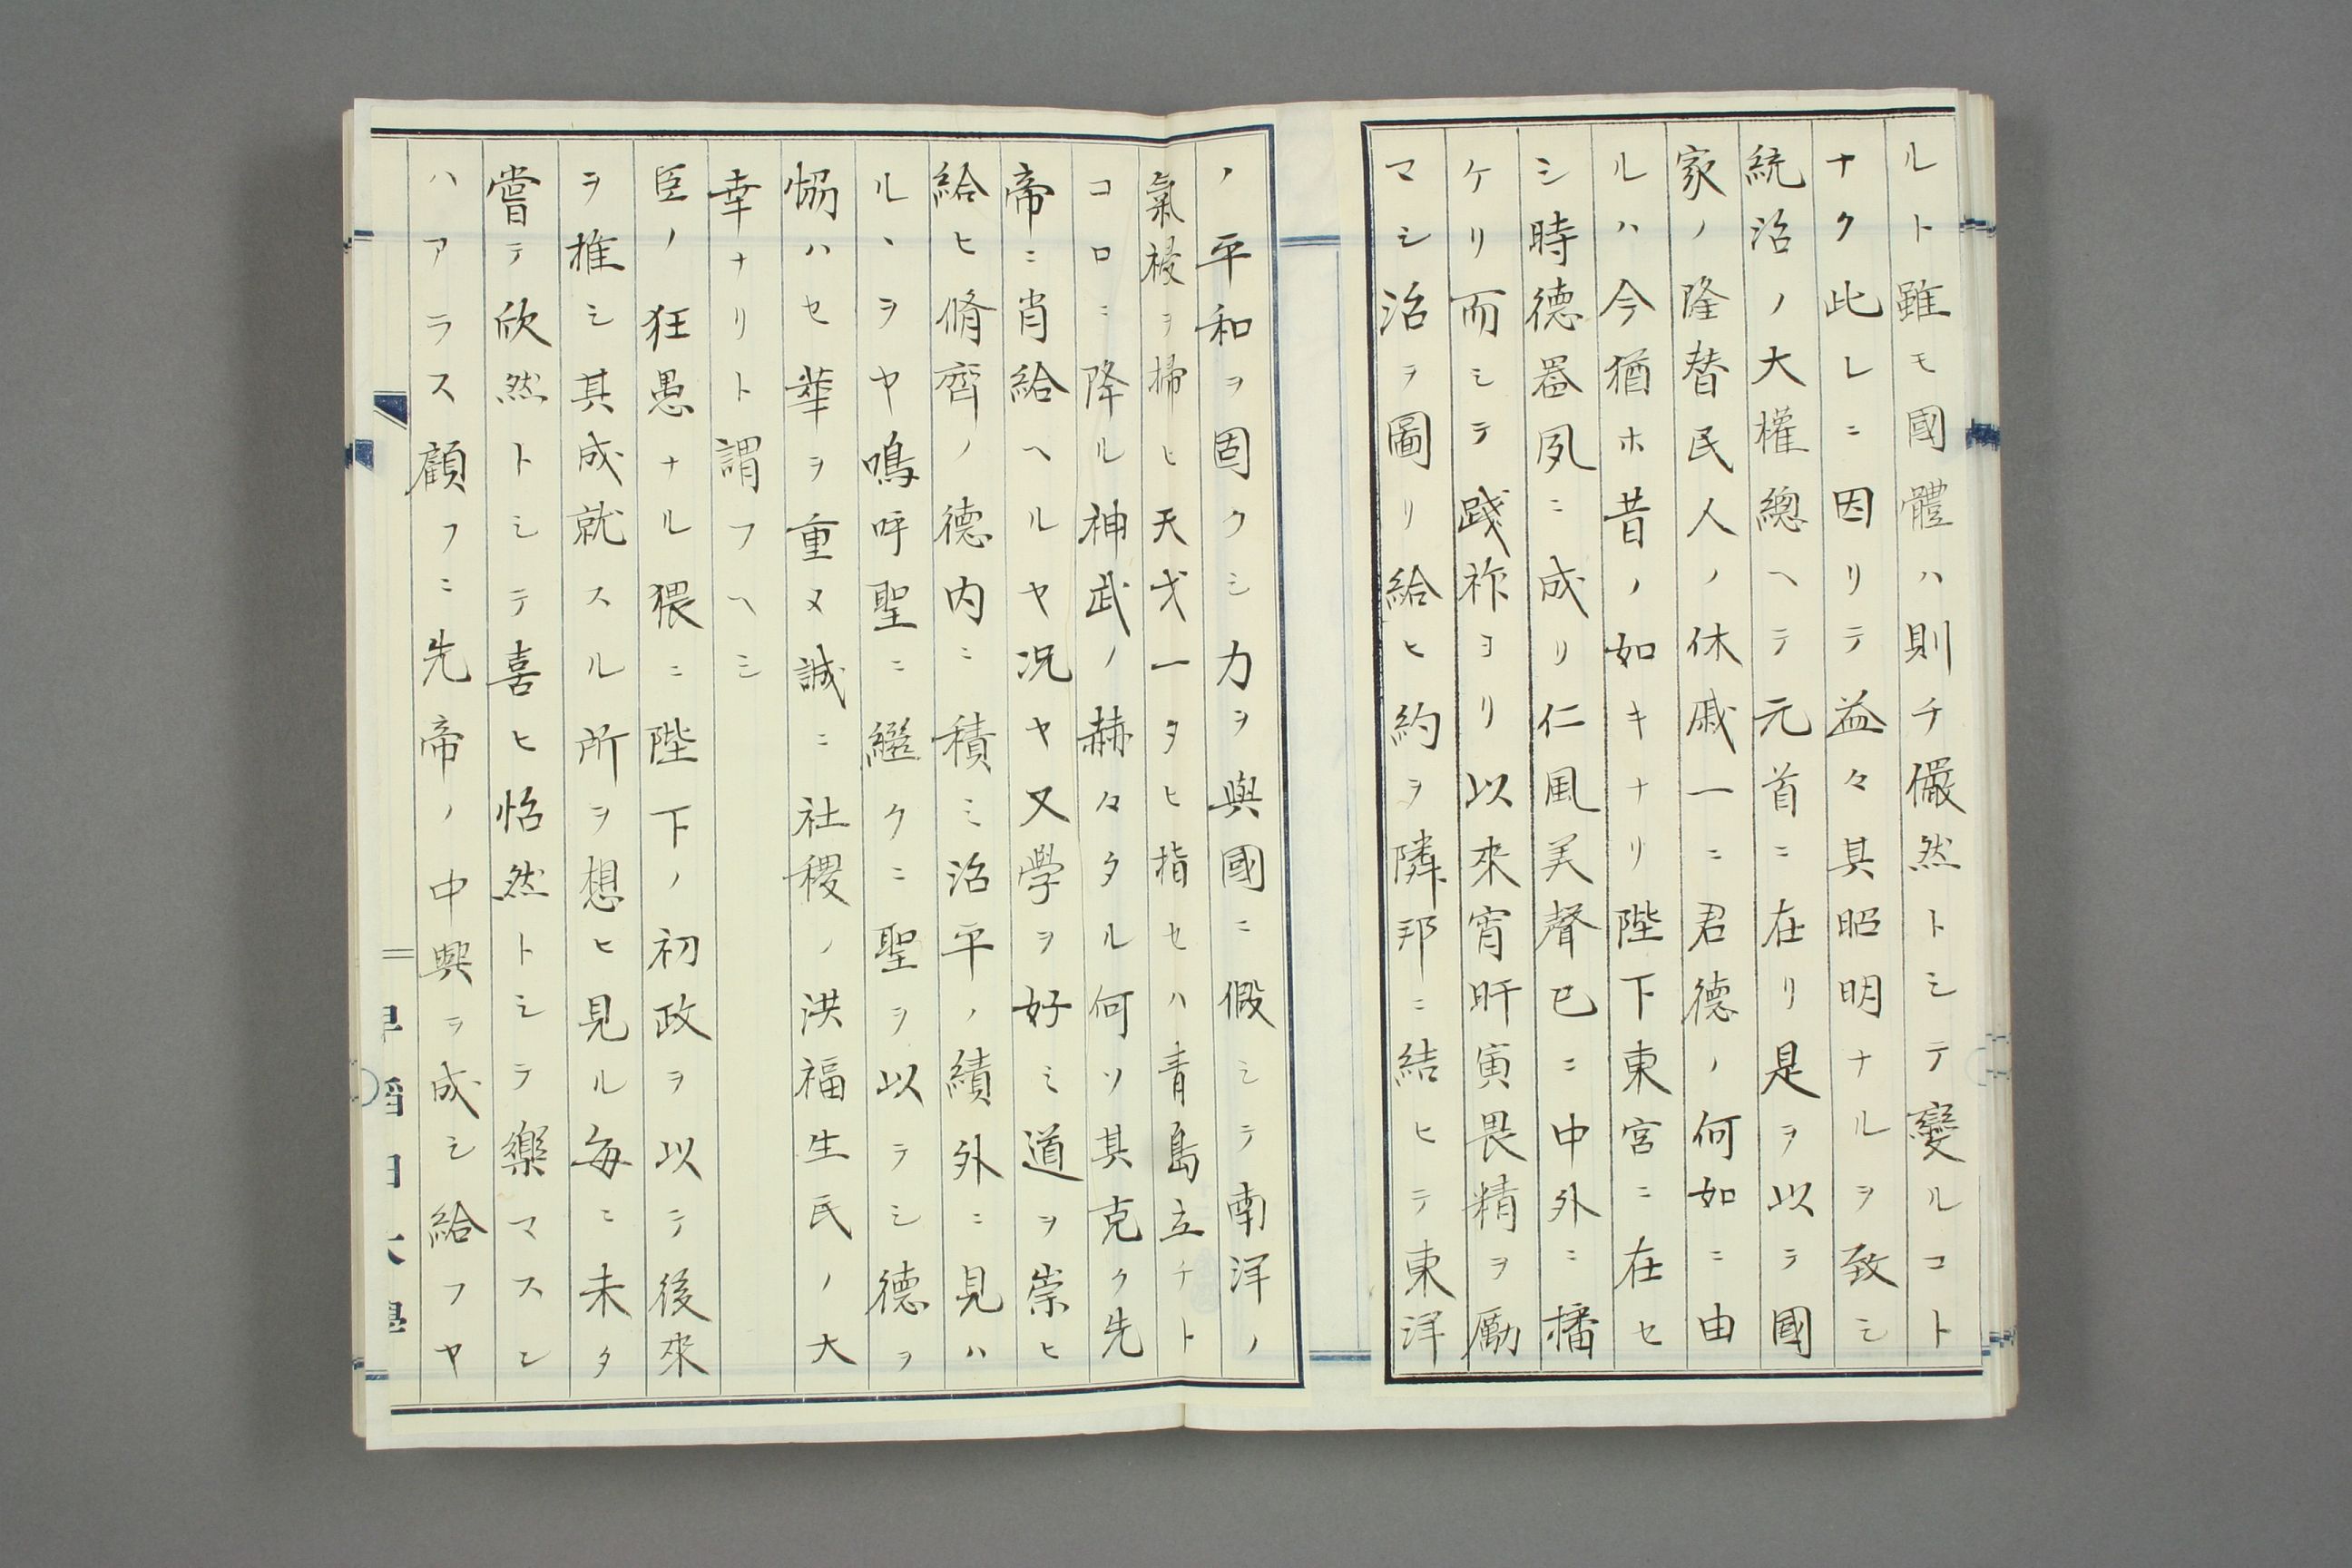 ルト雖モ國體ハ則チ儼然トシテ變ルコト
ナク此レニ因リテ益々其昭明ナルヲ致シ
統治ノ大權總ヘテ元首ニ在リ是ヲ以テ國
家ノ隆替民人ノ休戚一ニ君德ノ何如ニ由
ルハ今猶ホ昔ノ如キナリ陛下東宮ニ在セ
シ時德器夙ニ成リ仁風美聲已ニ中外ニ播
ケリ而シテ踐祚ヨリ以來宵旰寅畏精ヲ勵
マシ治ヲ圖リ給ヒ約ヲ隣邦ニ結ヒテ東洋
ノ平和ヲ固クシ力ヲ與國ニ假シテ南洋ノ
氣祲ヲ掃ヒ天戈一タヒ指セハ青島立チト
コロニ降ル神武ノ赫々タル何ソ其克ク先
帝ニ肖給ヘルヤ況ヤ又學ヲ好ミ道ヲ崇ヒ
給ヒ脩齊ノ德内ニ積ミ治平ノ績外ニ見ハ
ルヽヲヤ嗚呼聖ニ繼クニ聖ヲ以テシ德ヲ
恊ハセ華ヲ重ヌ誠ニ社稷ノ洪福生民ノ大
幸ナリト謂フヘシ
臣ノ狂愚ナル猥ニ陛下ノ初政ヲ以テ後來
ヲ推シ其成就スル所ヲ想ヒ見ル每ニ未タ
嘗テ欣然トシテ喜ヒ怡然トシテ樂マスン
ハアラス顧フニ先帝ノ中興ヲ成シ給フヤ
早稻田大學